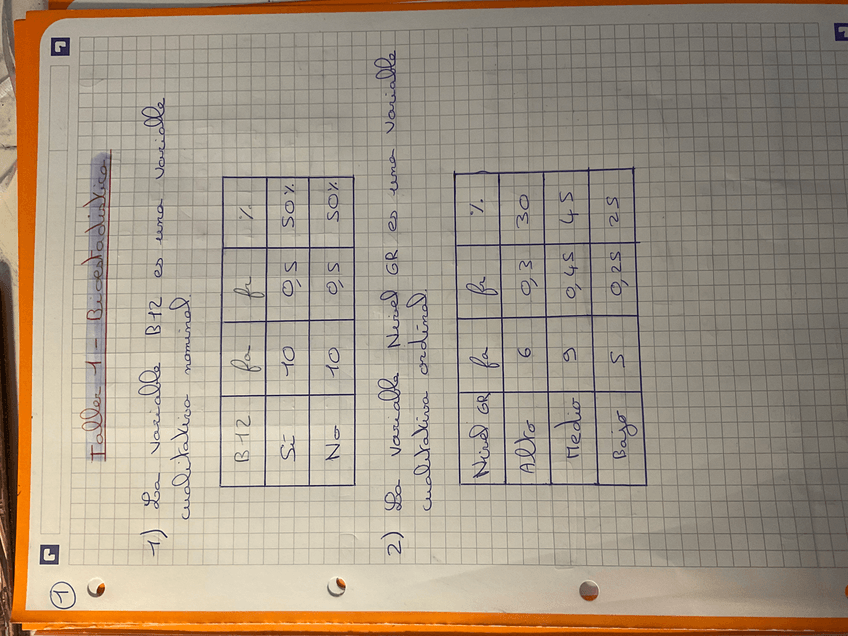 1
Taller 1 - Bioestadística
1) La variable B12 es una variable
cualitativa nominal.
B12 fa fr %
Sí 10 0,5 50%
No 10 0,5 50%
2) La variable Nivel GR es una variable
cualitativa ordinal.
Nivel GR fa fr %
Alto 6 0,3 30
Medio 9 0,45 45
Bajo 5 0,25 25